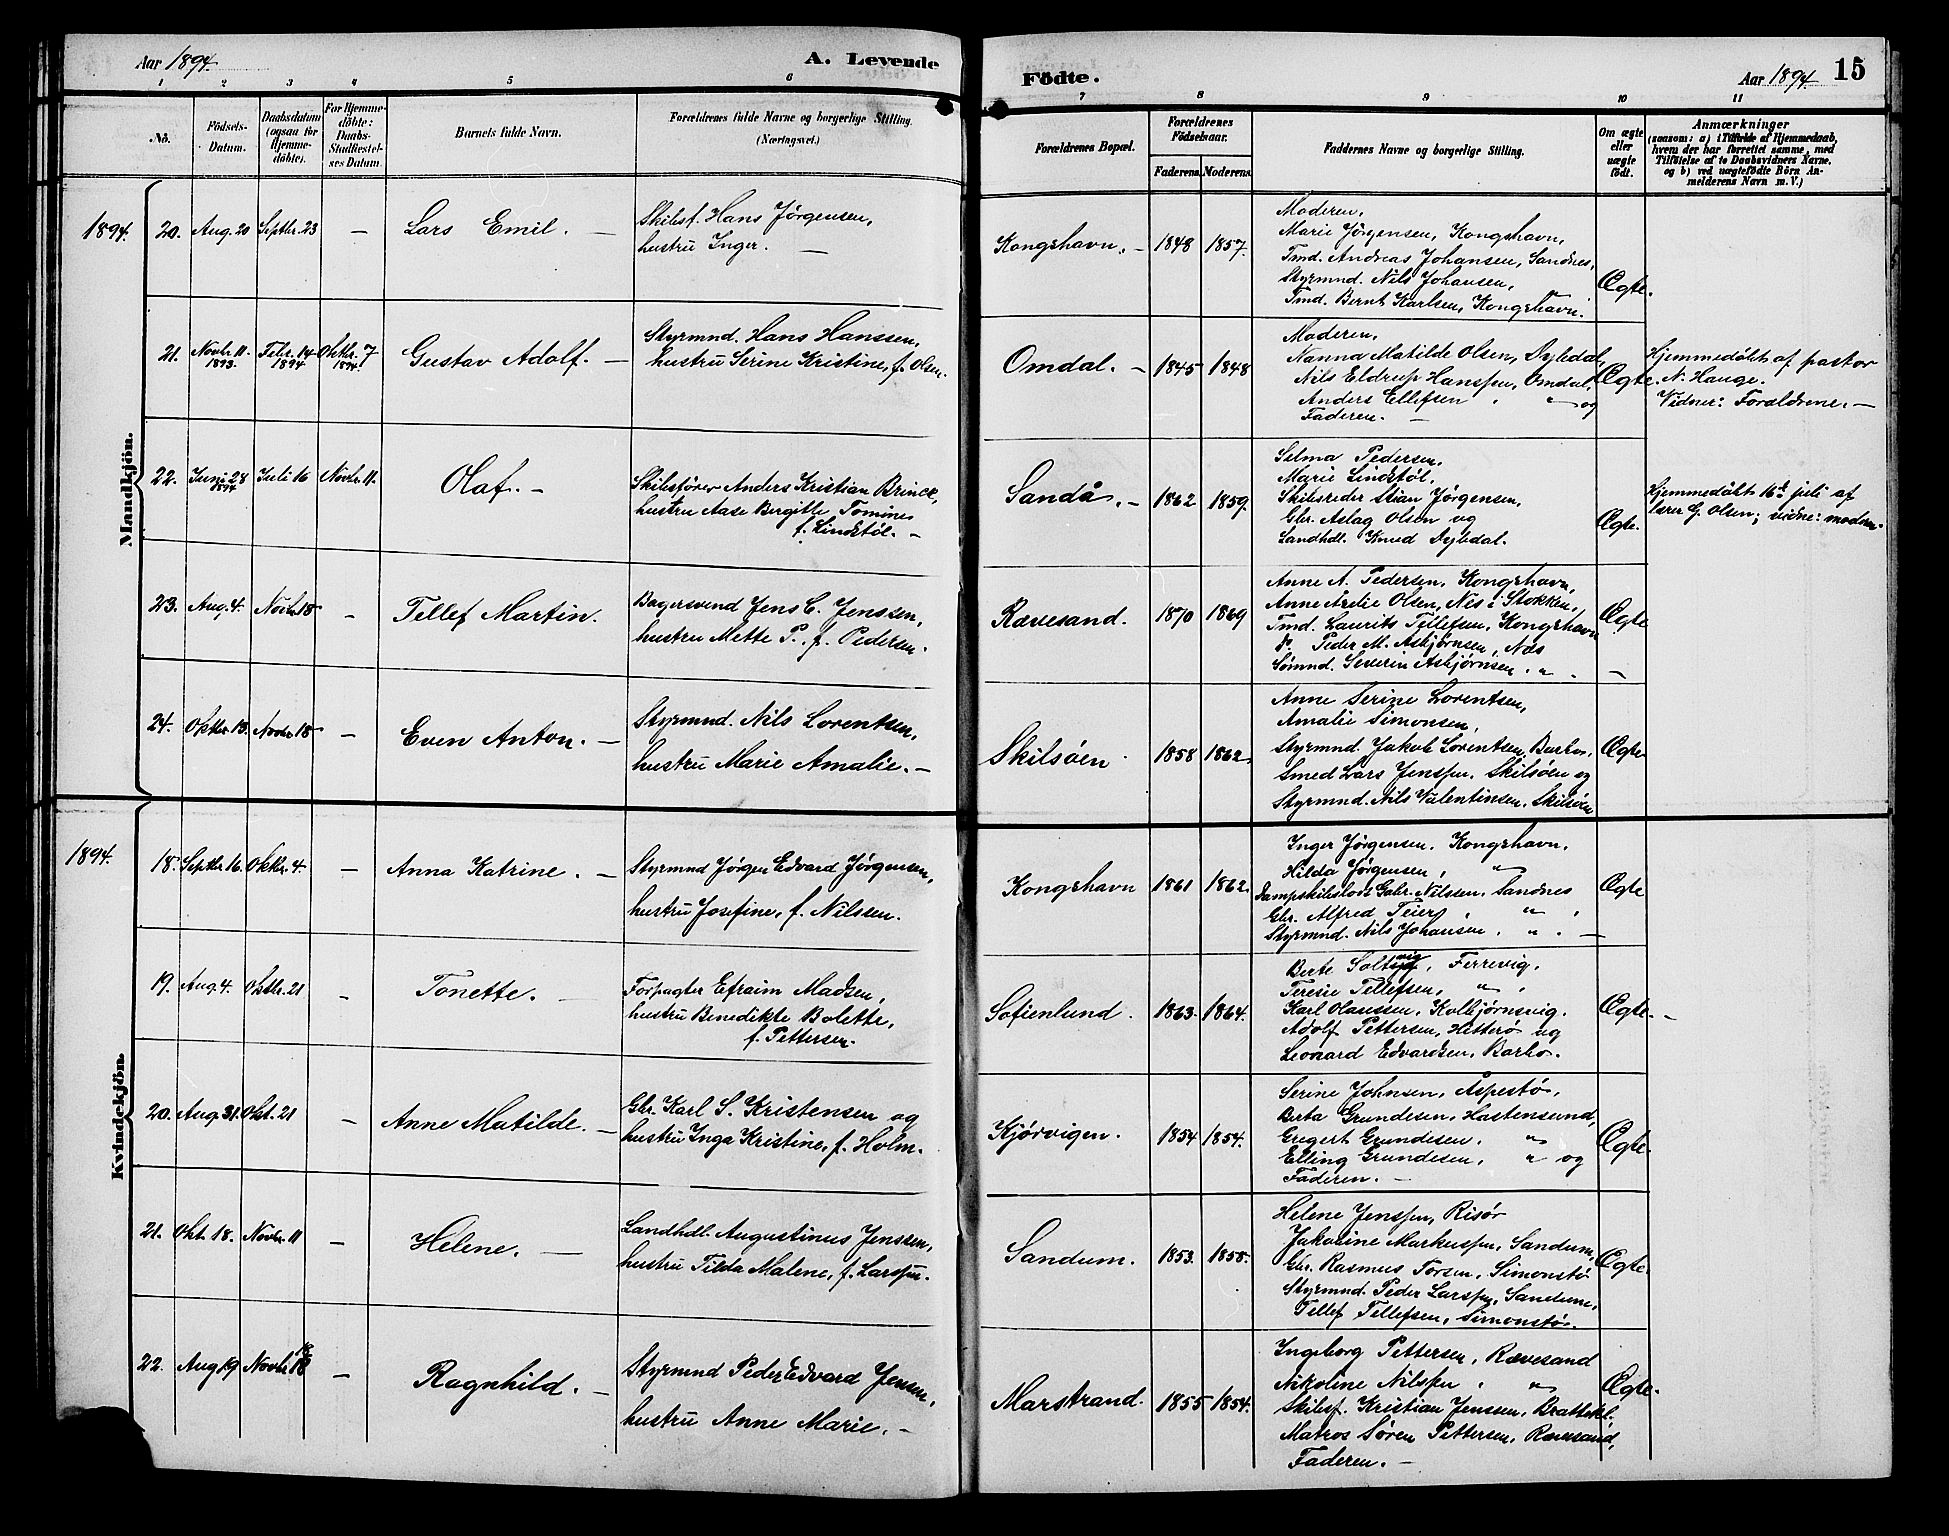 Aar 1894.
A. Levende
Födte.
Aar 1894.
15
1 2 3 4 5 6
7 8 9 10 11
No.
Födsels-Datum.
Daabsdatum (ogsaa for Hjemmedöbte).
For Hjemmedöbte: Daabs-Stadfæstelses Datum.
Barnets fulde Navn.
Forældrenes fulde Navne og borgerlige Stilling.
(Næringsvei.)
Forældrenes Bopæl.
Forældrenes Födselsaar.
Faderens. Moderens.
Faddernes Navne og borgerlige Stilling.
Om ægte eller uægte födt.
Anmærkninger
(saasom: a) i Tilfælde af Hjemmedaab, hvem der har forrettet samme, med Tilföielse af to Daabsvidners Navne, og b) ved uægtefödte Börn Anmelderens Navn m. V.)
Mandkjön.
1894. 20. Aug. 20 Septbr. 23 — Lars Emil. —
Skibsf. Hans Jørgensen,
hustru Inger. —
Kongshavn. — 1848 1857.
Moderen,
Marie Jørgensen, Kongshavn,
Tmd. Andreas Johansen, Sandnes,
Styrmnd. Nils Johansen, "
Tmd. Bernt Karlsen, Kongshavn.
Ægte.
21. Novbr. 11. 1893. Febr. 14 1894 Oktbr. 7 1894. Gustav Adolf. —
Styrmnd. Hans Hanssen,
hustru Serine Kristine, f. Olsen.
Omdal. — 1845 1848
Moderen,
Nanna Matilde Olsen, Dybdal,
Nils Eldrup Hanssen, Omdal,
Anders Ellefsen " og
Faderen. —
Ægte.
Hjemmedøbt af pastor
N. Hauge.
Vidner: Forældrene. —
22. Juni 28 1894 Juli 16 Novbr. 11. Olaf. —
Skibsfører Anders Kristian Brinck,
hustru Aase Bergitte Tomine,
f. Lindstøl. —
Sandå. — 1862 1859.
Selma Pedersen,
Marie Lindstøl,
Skibsreder Stian Jørgensen,
Gbr. Aslag Olsen og
Landhdl. Knud Dybdal.
Ægte.
Hjemmedøbt 16de juli af
lærer G. Olsen; vidne: modern.
23. Aug. 4. Novbr. 18 — Tellef Martin.
Bagersvend Jens C. Jenssen,
hustru Mette P., f. Pedersen.
Rævesand. 1870 1869
Anne A. Pedersen, Kongshavn,
Anne Arelie Olsen, Nes i Stokken,
Tmd. Laurits Tellefsen, Kongshavn
do. Peder M. Asbjørnsen, Næs
Sømnd. Severin Asbjørnsen. " . —
Ægte
24. Oktbr. 13. Novbr. 18 — Even Anton. —
Styrmnd. Nils Lorentsen,
hustru Marie Amalie. —
Skilsøen. 1858 1862
Anne Serine Lorentsen,
Amalie Simonsen,
Styrmnd. Jakob Lorentsen, Barbo,
Smed Lars Jenssen, Skilsøen og
Styrmnd. Nils Valentinsen, Skilsøen
Ægte
Kvindekjön.
1894. 18. Septbr. 16. Oktbr. 4. — Anna Katrine. —
Styrmnd Jørgen Edvard Jørgensen,
hustru Josefine, f. Nilssen.
Kongshavn 1861 1862.
Inger Jørgensen, Kongshavn,
Hilda Jørgensen, "
Dampskibslods Gabr. Nilssen, Sandnes
Gbr. Alfred Teier, " ,
Styrmnd. Nils Johansen, " . —
Ægte
19. Aug. 4. Oktbr. 21 — Tonette. —
Forpagter Efraim Madsen,
hustru Benedikte Bolette,
f. Pettersen.
Sofienlund. 1863. 1864.
Berte Soltvig, Ferrevig,
Teresie Tellefsen, " ,
Karl Olaussen, Kolbjørnsvig.
Adolf Pettersen, Hitterø og
Leonard Edvardsen, Barbo.
Ægte. —
20. Aug. 31. Okt. 21 — Anne Matilde. —
Gbr. Karl S. Kristensen og
hustru Inga Kristine, f. Holm.
Kjørvigen. 1854 1854.
Serine Johnsen, Aspestø,
Berta Grundesen, Hastensund,
Gregert Grundesen, "
Elling Grundesen, " og
Faderen. —
Ægte.
21. Okt. 18. Novbr. 11 — Helene. —
Landhdl. Augustinus Jenssen,
hustru Tilda Malene, f. Larssen.
Sandum. 1853. 1855.
Helene Jenssen, Risør
Jakobine Markussen, Sandum,
Gbr. Rasmus Torsen, Simonstø
Styrmnd. Peder Larssen, Sandum,
Tellef Tellefsen, Simonstø.
Ægte.
22. Aug 19 Novbr. 18 — Ragnhild. —
Styrmnd Peder Edvard Jensen,
hustru Anne Marie. —
Marstrand. 1855 1854.
Ingeborg Pettersen, Rævesand
Nikoline Nilssen, "
Skibsf. Kristian Jenssen, Brattekl.
Matros Søren Pettersen, Rævesand,
Faderen. —
Ægte.